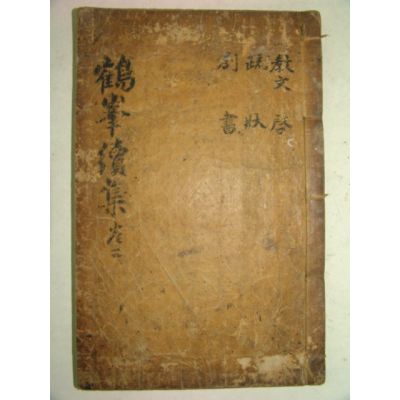 鶴峯續集 卷二
教文 啓
疏 狀
剳 書